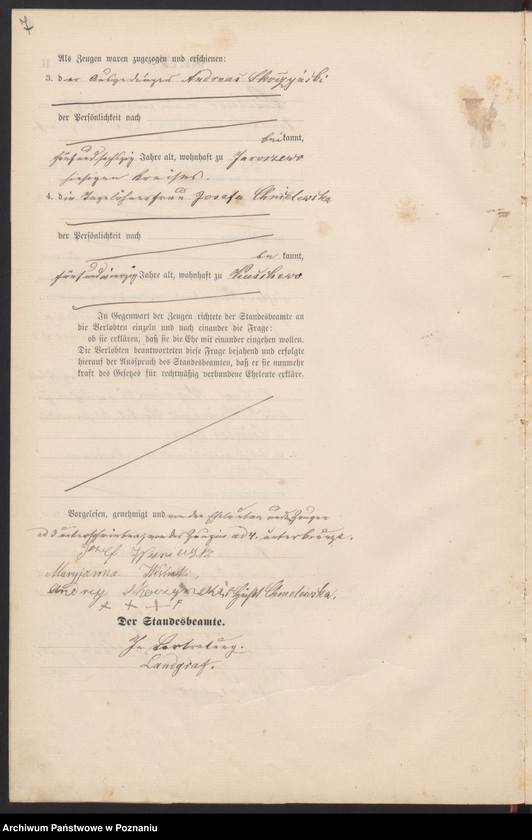 7
Als Zeugen waren zugezogen und erschienen:
3. der Ausgedinger Andreas Skoczyński
der Persönlichkeit nach
bekannt,
fünfundsechszig Jahre alt, wohnhaft zu Jaroszewo
hiesigen Kreises.
4. die Tagelöhnerfrau Josefa Chmielewska
der Persönlichkeit nach
be kannt,
fünfundvierzig Jahre alt, wohnhaft zu
In Gegenwart der Zeugen richtete der Standesbeamte an
die Verlobten einzeln und nach einander die Frage:
ob sie erklären, daß sie die Ehe mit einander eingehen wollen.
Die Verlobten beantworteten diese Frage bejahend und erfolgte
hierauf der Ausspruch des Standesbeamten, daß er sie nunmehr
kraft des Gesetzes für rechtmäßig verbundene Eheleute erkläre.
Vorgelesen, genehmigt und von den Eheleuten und Zeugen
ad 3 unterschrieben, von der Zeugin ad 4. unterkreuzt.
Józef
Maryjanna
Andrzy Skoczynski
+ + + Josefa Chmielewska.
Der Standesbeamte.
In Vertretung.
Landgraf.
Archiwum Państwowe w Poznaniu